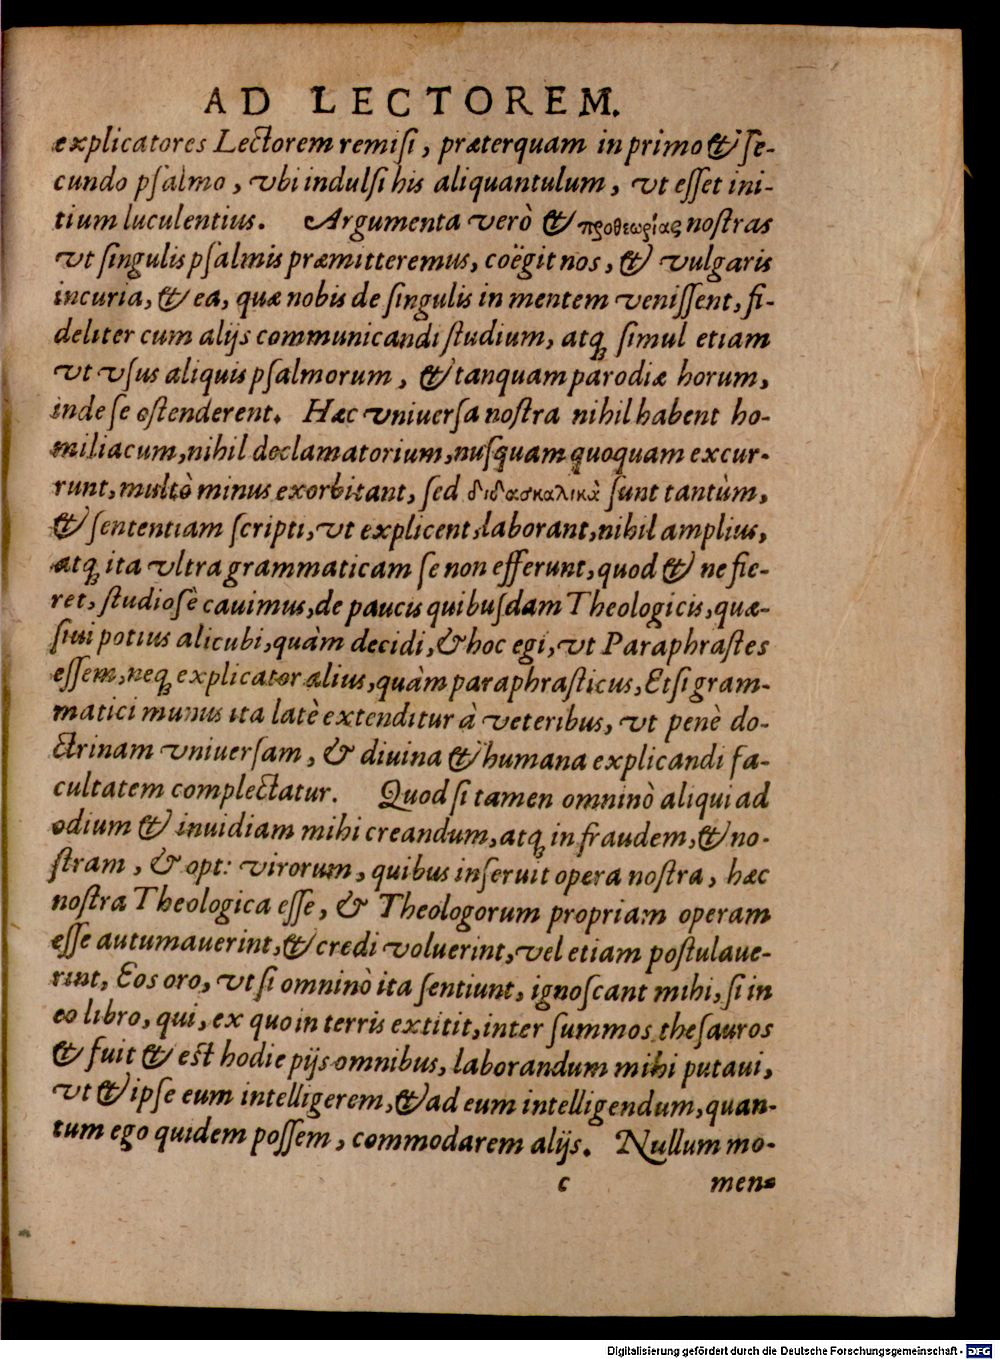 AD LECTOREM.
explicatores Lectorem remisi, præterquam in primo & se-
cundo psalmo, vbi indulsi his aliquantulum, vt esset ini-
tium luculentius. Argumenta verò & προθεωρίας nostras
vt singulis psalmis præmitteremus, coëgit nos, & vulgaris
incuria, & ea, quæ nobis de singulis in mentem venissent, fi-
deliter cum alijs communicandi studium, atq́ simul etiam
vt vsus aliquis psalmorum, & tanquam parodiæ horum,
inde se ostenderent. Hæc vniuersa nostra nihil habent ho-
miliacum, nihil declamatorium, nusquam quoquam excur-
runt, multò minus exorbitant, sed διδασκαλικὰ sunt tantùm,
& sententiam scripti, vt explicent, laborant, nihil amplius,
atq́ ita vltra grammaticam se non efferunt, quod & ne fie-
ret, studiosè cauimus, de paucis quibusdam Theologicis, quæ-
siui potius alicubi, quàm decidi, & hoc egi, vt Paraphrastes
essem, neq́ explicator alius, quàm paraphrasticus, Etsi gram-
matici munus ita latè extenditur à veteribus, vt penè do-
ctrinam vniuersam, & diuina & humana explicandi fa-
cultatem complectatur. Quod si tamen omninò aliqui ad
odium & inuidiam mihi creandum, atq́ in fraudem, & no-
stram, & opt: virorum, quibus inseruit opera nostra, hæc
nostra Theologica esse, & Theologorum propriam operam
esse autumauerint, & credi voluerint, vel etiam postulaue-
rint, Eos oro, vt si omninò ita sentiunt, ignoscant mihi, si in
eo libro, qui, ex quo in terris extitit, inter summos thesauros
& fuit & est hodie pijs omnibus, laborandum mihi putaui,
vt & ipse eum intelligerem, & ad eum intelligendum, quan-
tum ego quidem possem, commodarem alijs. Nullum mo-
c men-
Digitalisierung gefördert durch die Deutsche Forschungsgemeinschaft - DFG